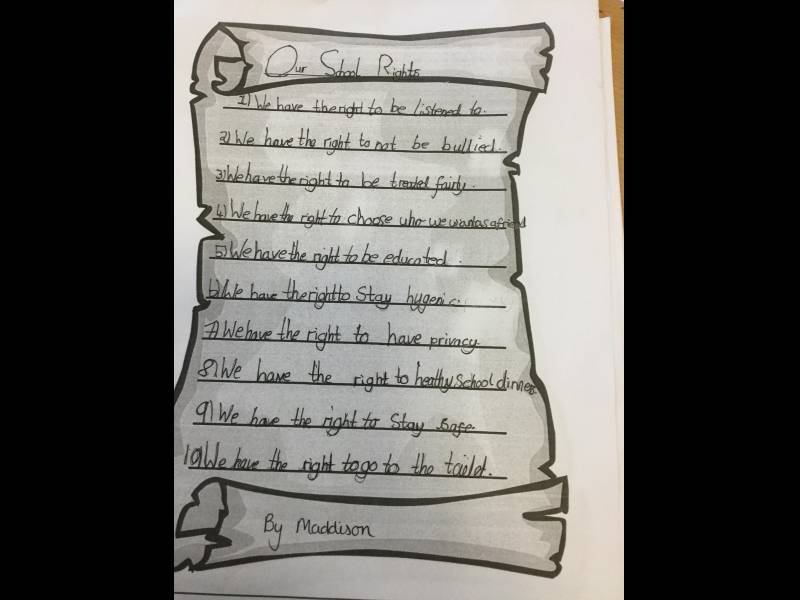 Our School Rights
1) We have the right to be listened to.
2) We have the right to not be bullied.
3) We have the right to be treated fairly.
4) We have the right to choose who we want as a friend
5) We have the right to be educated.
6) We have the right to Stay hygenic.
7) We have the right to have privacy.
8) We have the right to healthy School dinners
9) We have the right to Stay safe.
10) We have the right to go to the toilet.
By Maddison